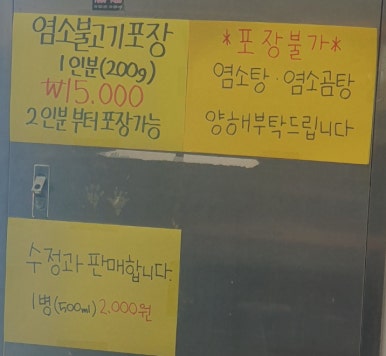 염소불고기포장
1인분(200g)
₩15.000
2인분부터포장가능
*포장불가*
염소탕·염소곰탕
양해부탁드립니다
수정과 판매합니다.
1병(500ml) 2.000원